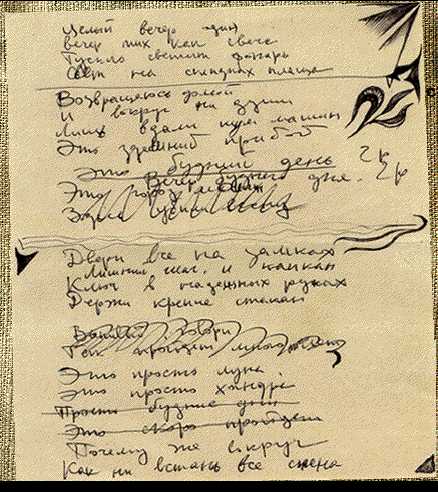 Целый вечер один
вечер тих как свеча
Тускло светит фонарь
Свет на складках плаща
Возвращаюсь домой
И вокруг ни души
Лишь вдали шум машин
Это здешний прибой
Это будний день 2 р
Вечер буднего дня.
Это город
Здесь
Двери все на замках
Лишний шаг и капкан
Ключ в надежных руках
Держи крепче стакан
говори
Так пройдет много
Это просто луна
Это просто хандра
Просто будние дни
Это скоро пройдет
Почему же вокруг
Как ни встань все стена